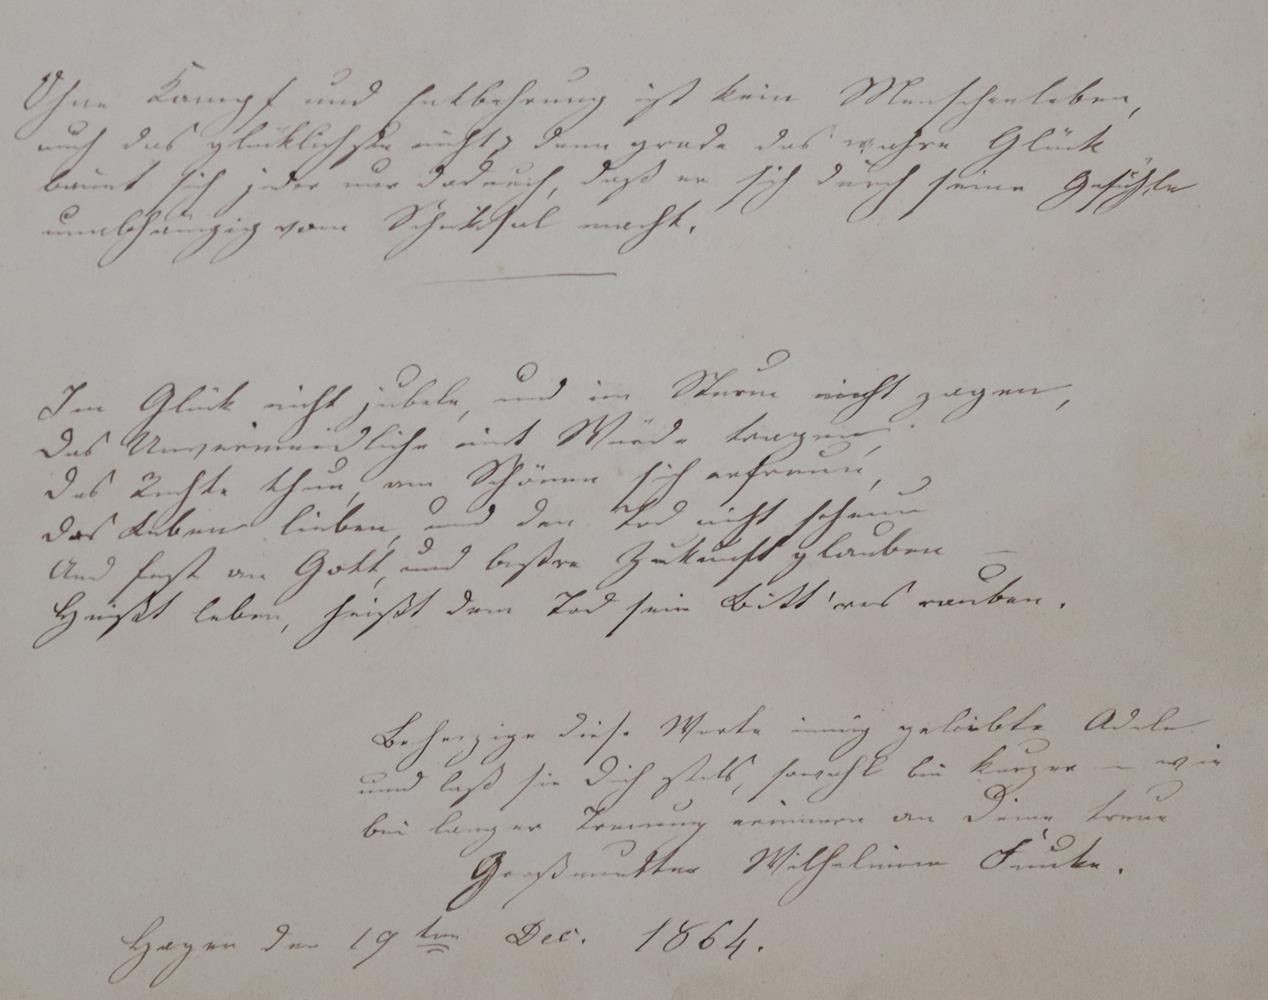 Ohne Kampf und Entbehrung ist kein Menschenleben,
auch das glücklichste nicht, denn grade das wahre Glück
baut sich jeder nur dadurch, daß er sich durch seine Gefühle
unabhängig vom Schiksal macht.
Im Glück nicht jubeln, und im Sturm nicht zagen,
Das Unvermeidliche mit Würde tragen,
Das Rechte thun, am Schönen sich erfreun,
Das Leben lieben, und den Tod nicht scheun
Und fest an Gott, und beßre Zukunft glauben –
Heißt leben, heißt dem Tod sein Bitt'res rauben.
Beherzige diese Worte innig geliebte Adele
und laß sie Dich stets, sowohl bei kurzer – wie
bei langer Trennung erinnern an Deine treue
Großmutter Wilhelmine Funke.
Hagen den 19ten Dec. 1864.